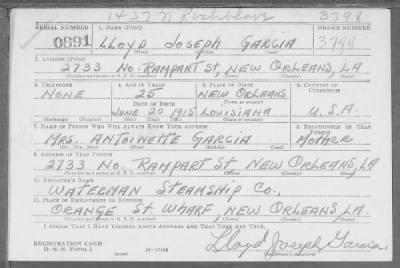 1437 N 3798
SERIAL NUMBER 1. NAME (Print) ORDER NUMBER
0891 LLOYD JOSEPH GARCIA 3798
(First) (Middle) (Last)
2. ADDRESS (Print)
2733 NO. RAMPART ST, NEW ORLEANS, LA
(Number and street or R. F. D. number) (Town) (County) (State)
3. TELEPHONE 4. AGE IN YEARS 5. PLACE OF BIRTH 6. COUNTRY OF CITIZENSHIP
NONE 25 NEW ORLEANS
DATE OF BIRTH (Town or county)
JUNE 20 1915 LOUISIANA U.S.A.
(Exchange) (Number) (Mo.) (Day) (Yr.) (State or country)
7. NAME OF PERSON WHO WILL ALWAYS KNOW YOUR ADDRESS 8. RELATIONSHIP OF THAT PERSON
MRS. ANTOINETTE GARCIA MOTHER
(Mr., Mrs., Miss) (First) (Middle) (Last)
9. ADDRESS OF THAT PERSON
2733 NO. RAMPART ST, NEW ORLEANS, LA
(Number and street or R. F. D. number) (Town) (County) (State)
10. EMPLOYER'S NAME
WATERMAN STEAMSHIP CO.,
11. PLACE OF EMPLOYMENT OR BUSINESS
ORANGE ST. WHARF, NEW ORLEANS, LA.
(Number and street or R. F. D. number) (Town) (County) (State)
I AFFIRM THAT I HAVE VERIFIED ABOVE ANSWERS AND THAT THEY ARE TRUE.
REGISTRATION CARD
D. S. S. Form 1 (over) Lloyd Joseph Garcia